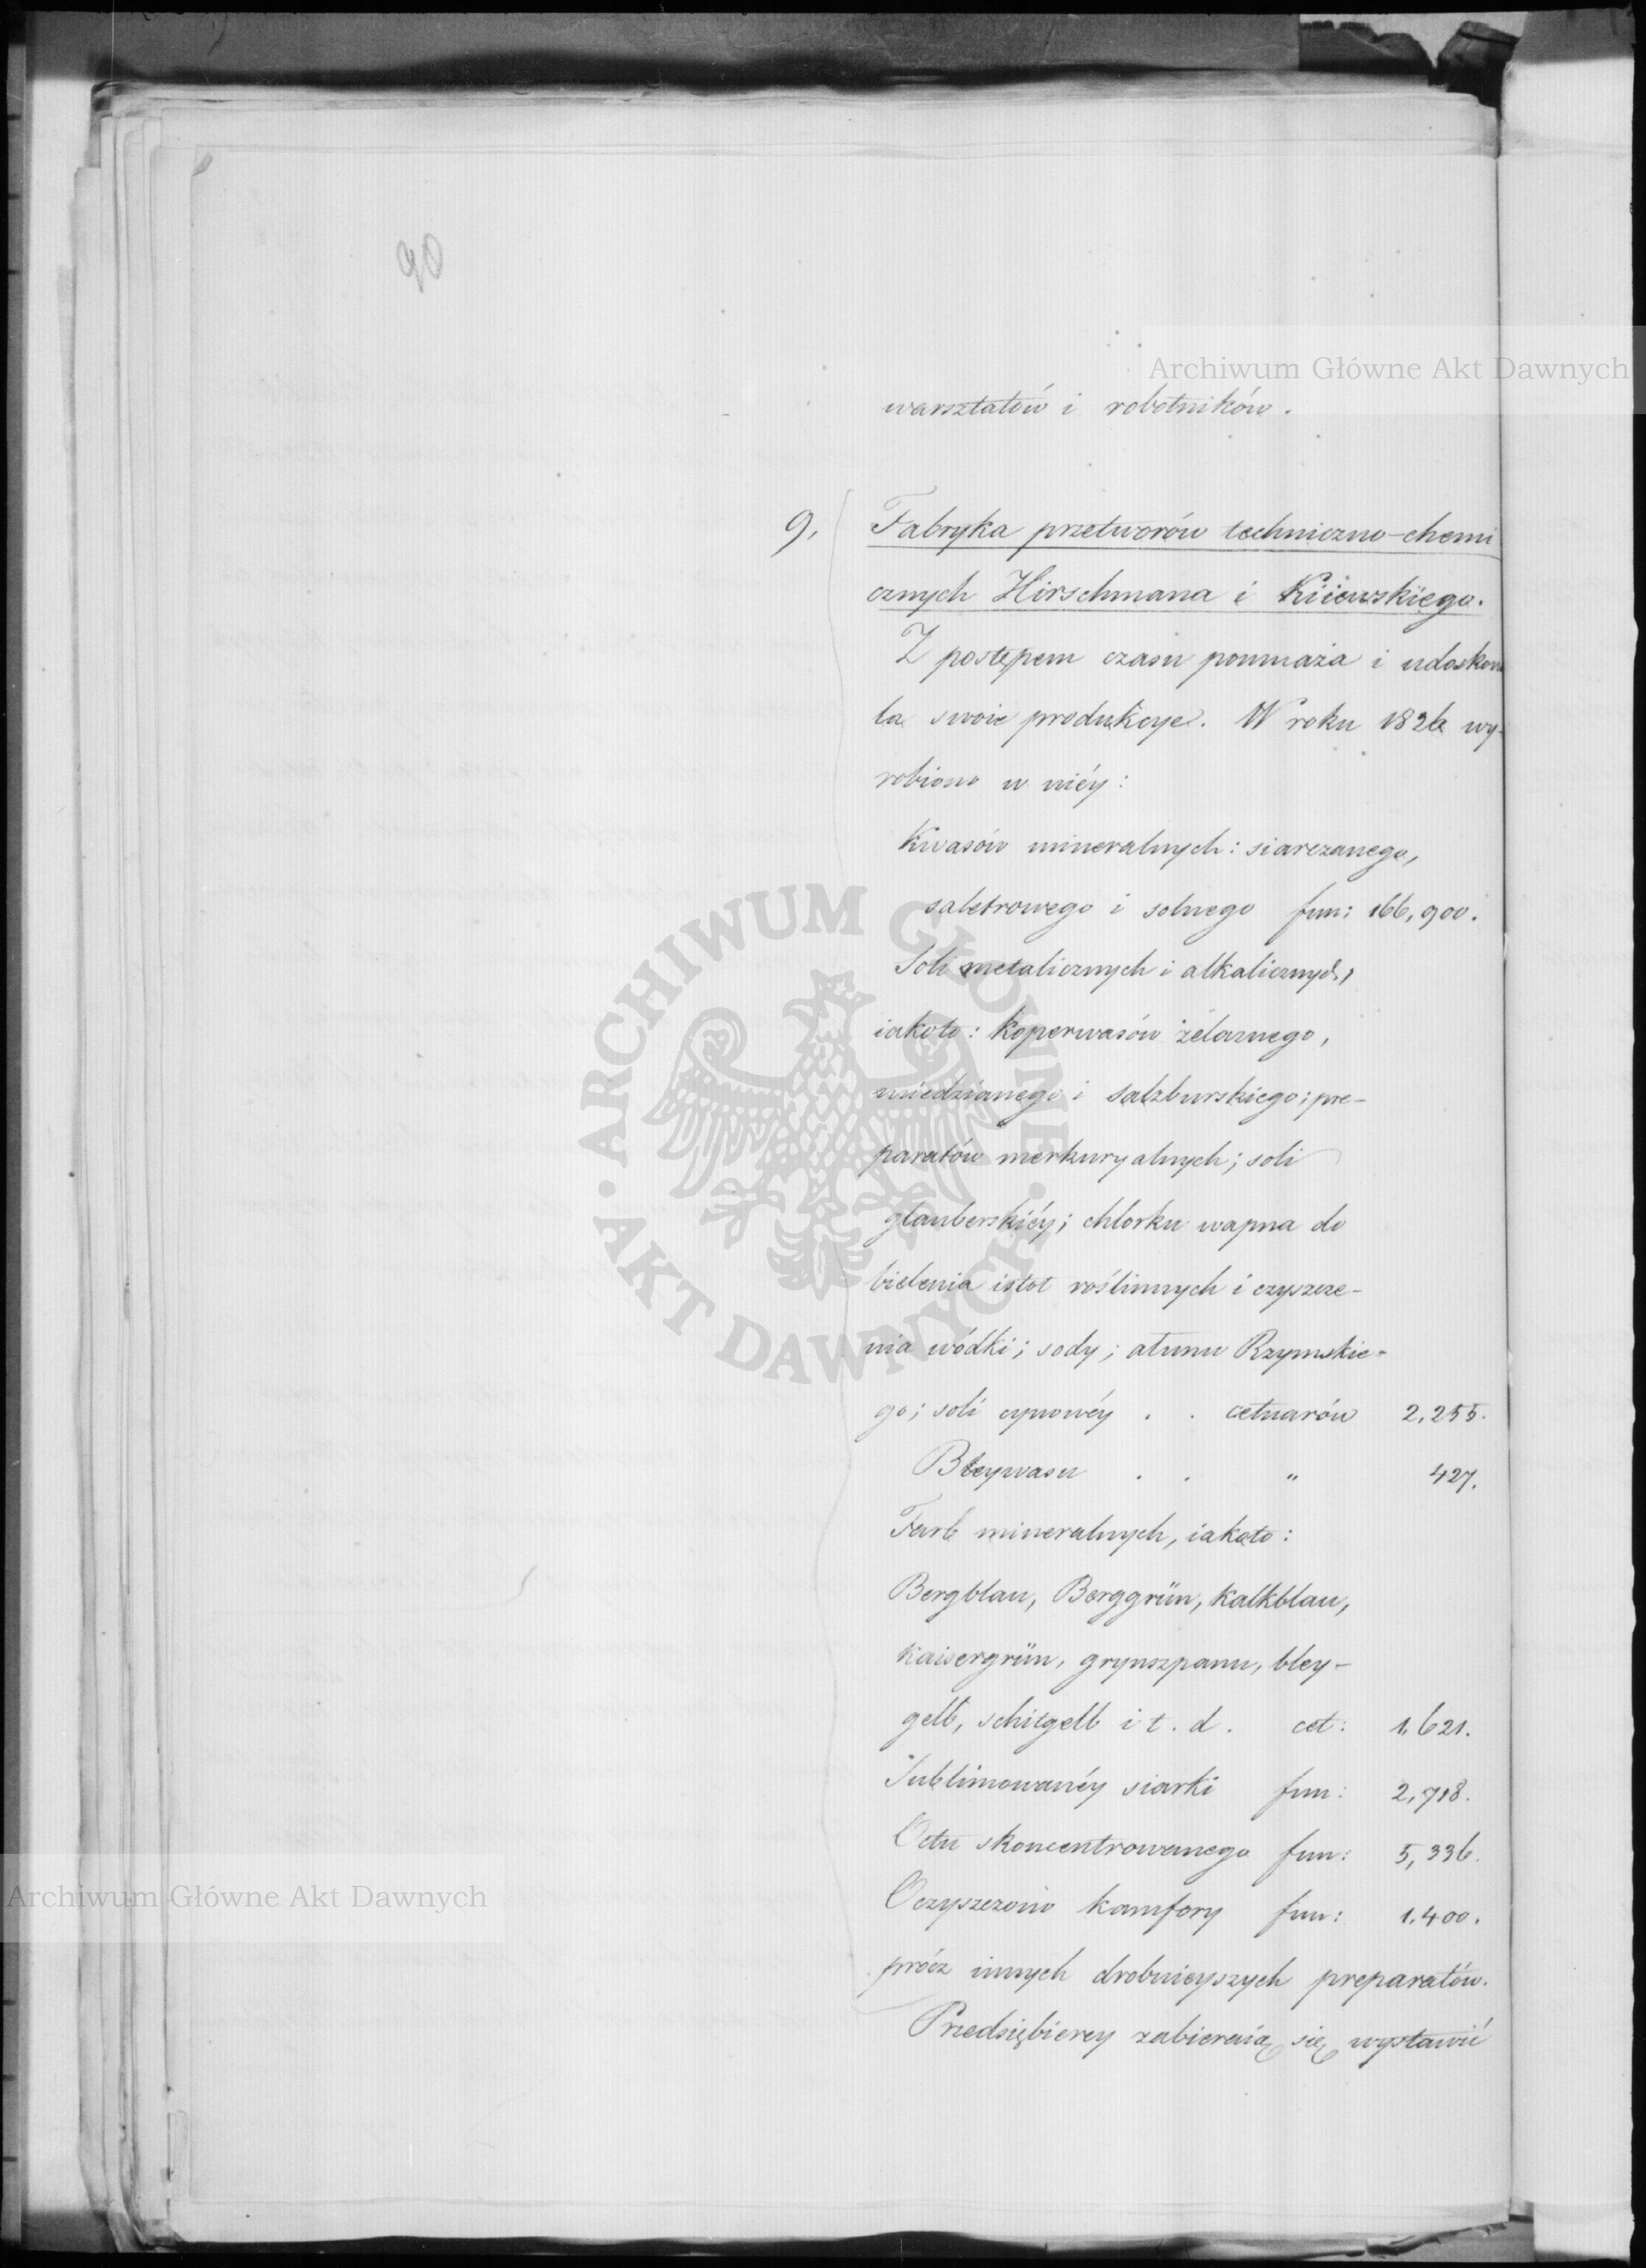 90
Archiwum Główne Akt Dawnych
warsztatów i robotników.
9, Fabryka przetworów techniczno-chemi
cznych Hirschmana i Kiiewskiego.
Z postępem czasu pomnaża i udoskona
la swoie produkcye. W roku 1826 wy-
robiono w niéy:
Kwasów mineralnych: siarczanego,
saletrowego i solnego fun: 166,900.
Soli metalicznych i alkalicznych,
iakoto: koperwasów żelaznego,
miedzianego i salzburskiego; pre-
paratów merkuryalnych; soli
glauberskiéy; chlorku wapna do
bielenia istot roślinnych i czyszcze-
nia wódki; sody; ałunu Rzymskie-
go; soli cynowéy . . cetnarów 2,255.
Bleywasu . . " 427.
Farb mineralnych, iakoto:
Bergblau, Berggrün, kalkblau,
kaisergrün, grynszpanu, bley-
gelb, schitgelb i t. d. cet: 1,621.
Sublimowanéy siarki fun: 2,718.
Octu skoncentrowanego fun: 5,336.
Oczyszczono kamfory fun: 1.400.
prócz innych drobnieyszych preparatów.
Przedsiębiercy zabieraią się wystawić
ARCHIWUM GŁÓWNE AKT DAWNYCH
Archiwum Główne Akt Dawnych